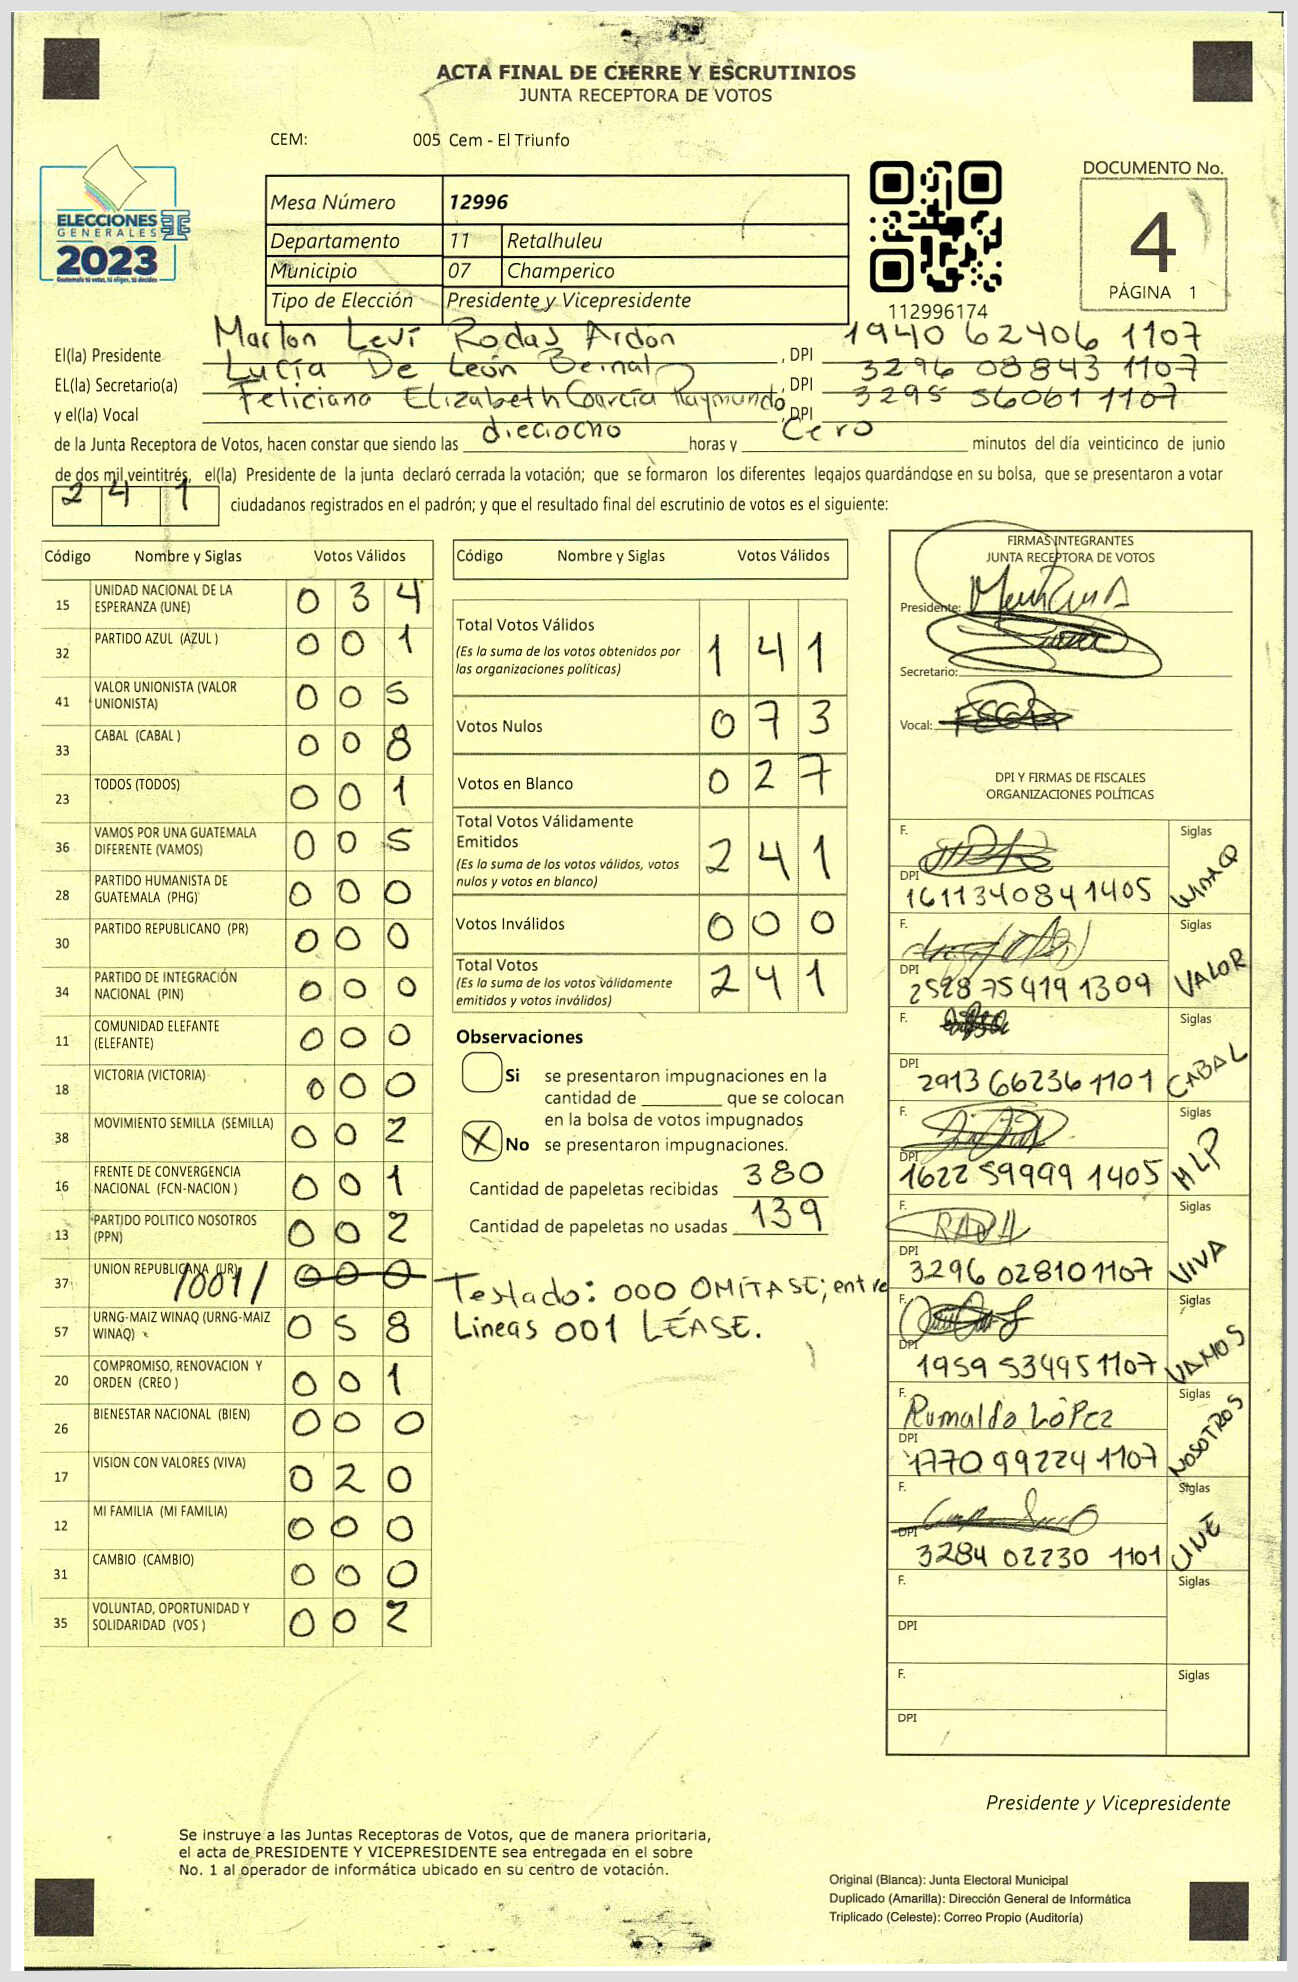 ACTA FINAL DE CIERRE Y ESCRUTINIOS
JUNTA RECEPTORA DE VOTOS
CEM: 005 Cem - El Triunfo
ELECCIONES
GENERALES
2023
Guatemala tú votas, tú eliges, tú decides
Mesa Número 12996
Departamento 11 Retalhuleu
Municipio 07 Champerico
Tipo de Elección Presidente y Vicepresidente
112996174
DOCUMENTO No.
4
PÁGINA 1
El(la) Presidente Marlon Leví Rodas Ardón , DPI 1940 62406 1107
EL(la) Secretario(a) Lucía De León Bernal , DPI 3296 08843 1107
y el(la) Vocal Feliciana Elizabeth García Raymundo , DPI 3295 56061 1107
de la Junta Receptora de Votos, hacen constar que siendo las dieciocho horas y Cero minutos del día veinticinco de junio
de dos mil veintitrés, el(la) Presidente de la junta declaró cerrada la votación; que se formaron los diferentes legajos guardándose en su bolsa, que se presentaron a votar
241 ciudadanos registrados en el padrón; y que el resultado final del escrutinio de votos es el siguiente:
Código Nombre y Siglas Votos Válidos
15 UNIDAD NACIONAL DE LA ESPERANZA (UNE) 0 3 4
32 PARTIDO AZUL (AZUL ) 0 0 1
41 VALOR UNIONISTA (VALOR UNIONISTA) 0 0 5
33 CABAL (CABAL ) 0 0 8
23 TODOS (TODOS) 0 0 1
36 VAMOS POR UNA GUATEMALA DIFERENTE (VAMOS) 0 0 5
28 PARTIDO HUMANISTA DE GUATEMALA (PHG) 0 0 0
30 PARTIDO REPUBLICANO (PR) 0 0 0
34 PARTIDO DE INTEGRACIÓN NACIONAL (PIN) 0 0 0
11 COMUNIDAD ELEFANTE (ELEFANTE) 0 0 0
18 VICTORIA (VICTORIA) 0 0 0
38 MOVIMIENTO SEMILLA (SEMILLA) 0 0 2
16 FRENTE DE CONVERGENCIA NACIONAL (FCN-NACION ) 0 0 1
13 PARTIDO POLITICO NOSOTROS (PPN) 0 0 2
37 UNION REPUBLICANA (UR) /001/ 0 0 0
57 URNG-MAIZ WINAQ (URNG-MAIZ WINAQ) 0 5 8
20 COMPROMISO, RENOVACION Y ORDEN (CREO ) 0 0 1
26 BIENESTAR NACIONAL (BIEN) 0 0 0
17 VISION CON VALORES (VIVA) 0 2 0
12 MI FAMILIA (MI FAMILIA) 0 0 0
31 CAMBIO (CAMBIO) 0 0 0
35 VOLUNTAD, OPORTUNIDAD Y SOLIDARIDAD (VOS ) 0 0 2
Código Nombre y Siglas Votos Válidos
Total Votos Válidos 1 4 1
(Es la suma de los votos obtenidos por
las organizaciones políticas)
Votos Nulos 0 7 3
Votos en Blanco 0 2 7
Total Votos Válidamente
Emitidos 2 4 1
(Es la suma de los votos válidos, votos
nulos y votos en blanco)
Votos Inválidos 0 0 0
Total Votos 2 4 1
(Es la suma de los votos válidamente
emitidos y votos inválidos)
Observaciones
Si se presentaron impugnaciones en la
cantidad de ________ que se colocan
en la bolsa de votos impugnados
X No se presentaron impugnaciones.
Cantidad de papeletas recibidas 380
Cantidad de papeletas no usadas 139
Testado: 000 OMITASE; entre
Lineas 001 LÉASE.
FIRMAS INTEGRANTES
JUNTA RECEPTORA DE VOTOS
Presidente:
Secretario:
Vocal:
DPI Y FIRMAS DE FISCALES
ORGANIZACIONES POLÍTICAS
F. Siglas WINAQ
DPI 1611 34084 1405
F. Siglas VALOR
DPI 2528 75419 1309
F. Siglas CABAL
DPI 2913 66236 1101
F. Siglas MLP
DPI 1622 59999 1405
F. Siglas VIVA
DPI 3296 02810 1107
F. Siglas VAMOS
DPI 1959 53495 1107
F. Rumaldo LòPez Siglas NOSOTROS
DPI 1770 99224 1107
F. Siglas UNE
DPI 3284 02230 1101
F. Siglas
DPI
F. Siglas
DPI
Presidente y Vicepresidente
Se instruye a las Juntas Receptoras de Votos, que de manera prioritaria,
el acta de PRESIDENTE Y VICEPRESIDENTE sea entregada en el sobre
No. 1 al operador de informática ubicado en su centro de votación.
Original (Blanca): Junta Electoral Municipal
Duplicado (Amarilla): Dirección General de Informática
Triplicado (Celeste): Correo Propio (Auditoría)